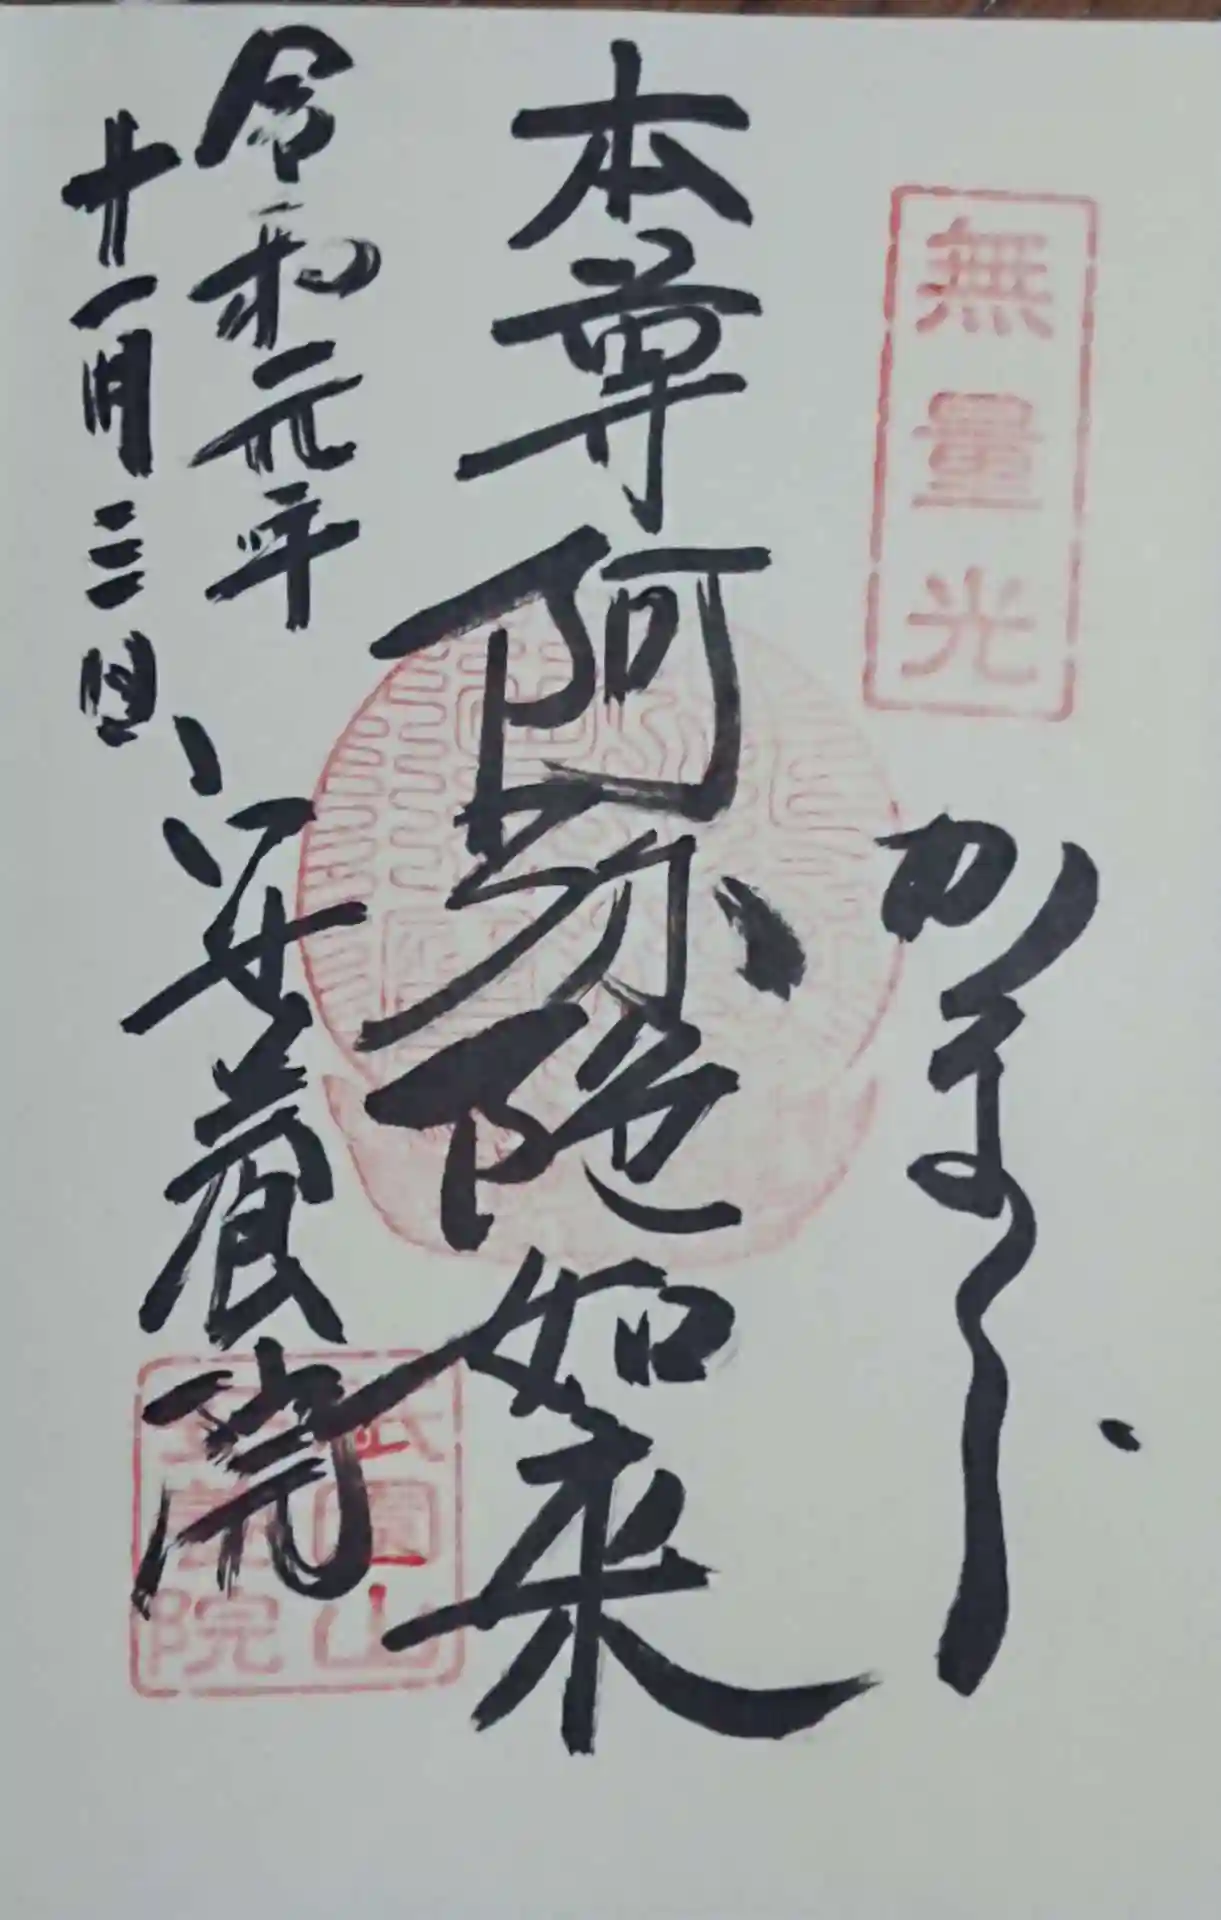 無量光
かまくら
本尊阿弥陀如来
令和元年
十一月三日
安養院
祇園山
安養院